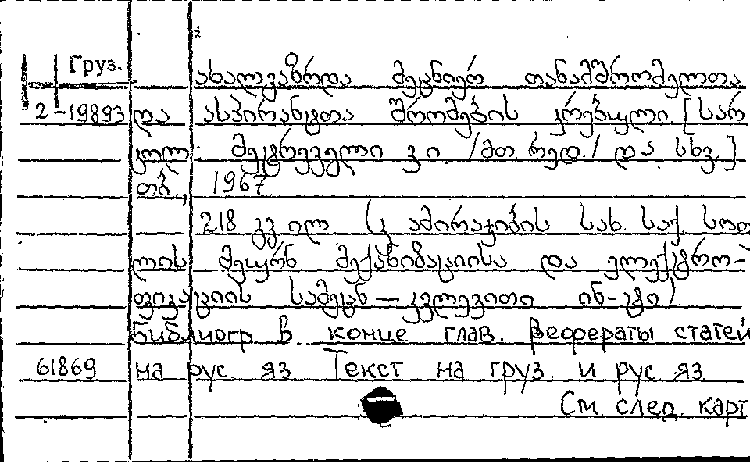 Груз.
ახალგაზრდა მეცნიერ თანამშრომელთა
2-19893 და ასპირანტთა შრომების კრებული. [სარ
კოლ.: მეტრეველი ვ. ი. /მთ. რედ./ და სხვ.]
თბ., 1967
218 გვ. ილ. (კ. ამირაჯიბის სახ. საქ. სოფ
ლის მეურნ. მექანიზაციისა და ელექტრო-
ფიკაციის სამეცნ.-კვლევითი ინ-ტი)
Библиогр. в конце глав. Рефераты статей
61869 на рус. яз. Текст на груз. и рус. яз.
См. след. карт